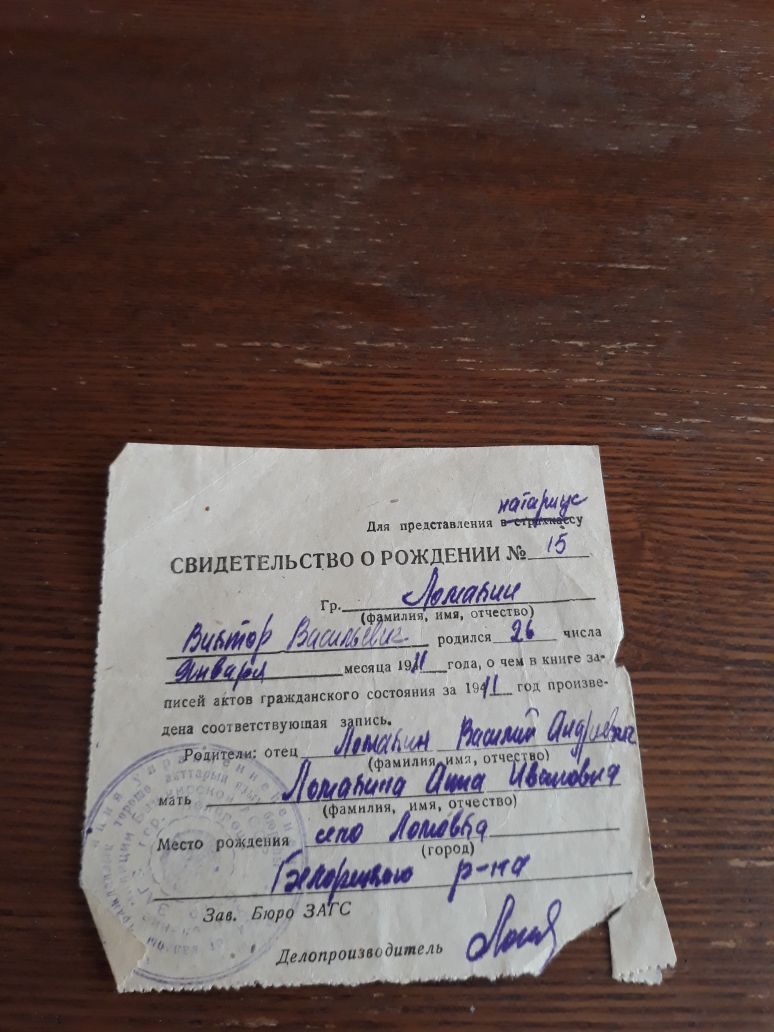 натариус
Для представления в страхкассу
СВИДЕТЕЛЬСТВО О РОЖДЕНИИ № 15
Гр. Ломакин
(фамилия, имя, отчество)
Виктор Васильевич родился 26 числа
Января месяца 1911 года, о чем в книге за-
писей актов гражданского состояния за 1911 год произве-
дена соответствующая запись.
Родители: отец Ломакин Василий
(фамилия, имя, отчество)
мать Ломакина Анна Ивановна
(фамилия, имя, отчество)
Место рождения село Ломовка
(город)
р-на
Зав. Бюро ЗАГС
Делопроизводитель